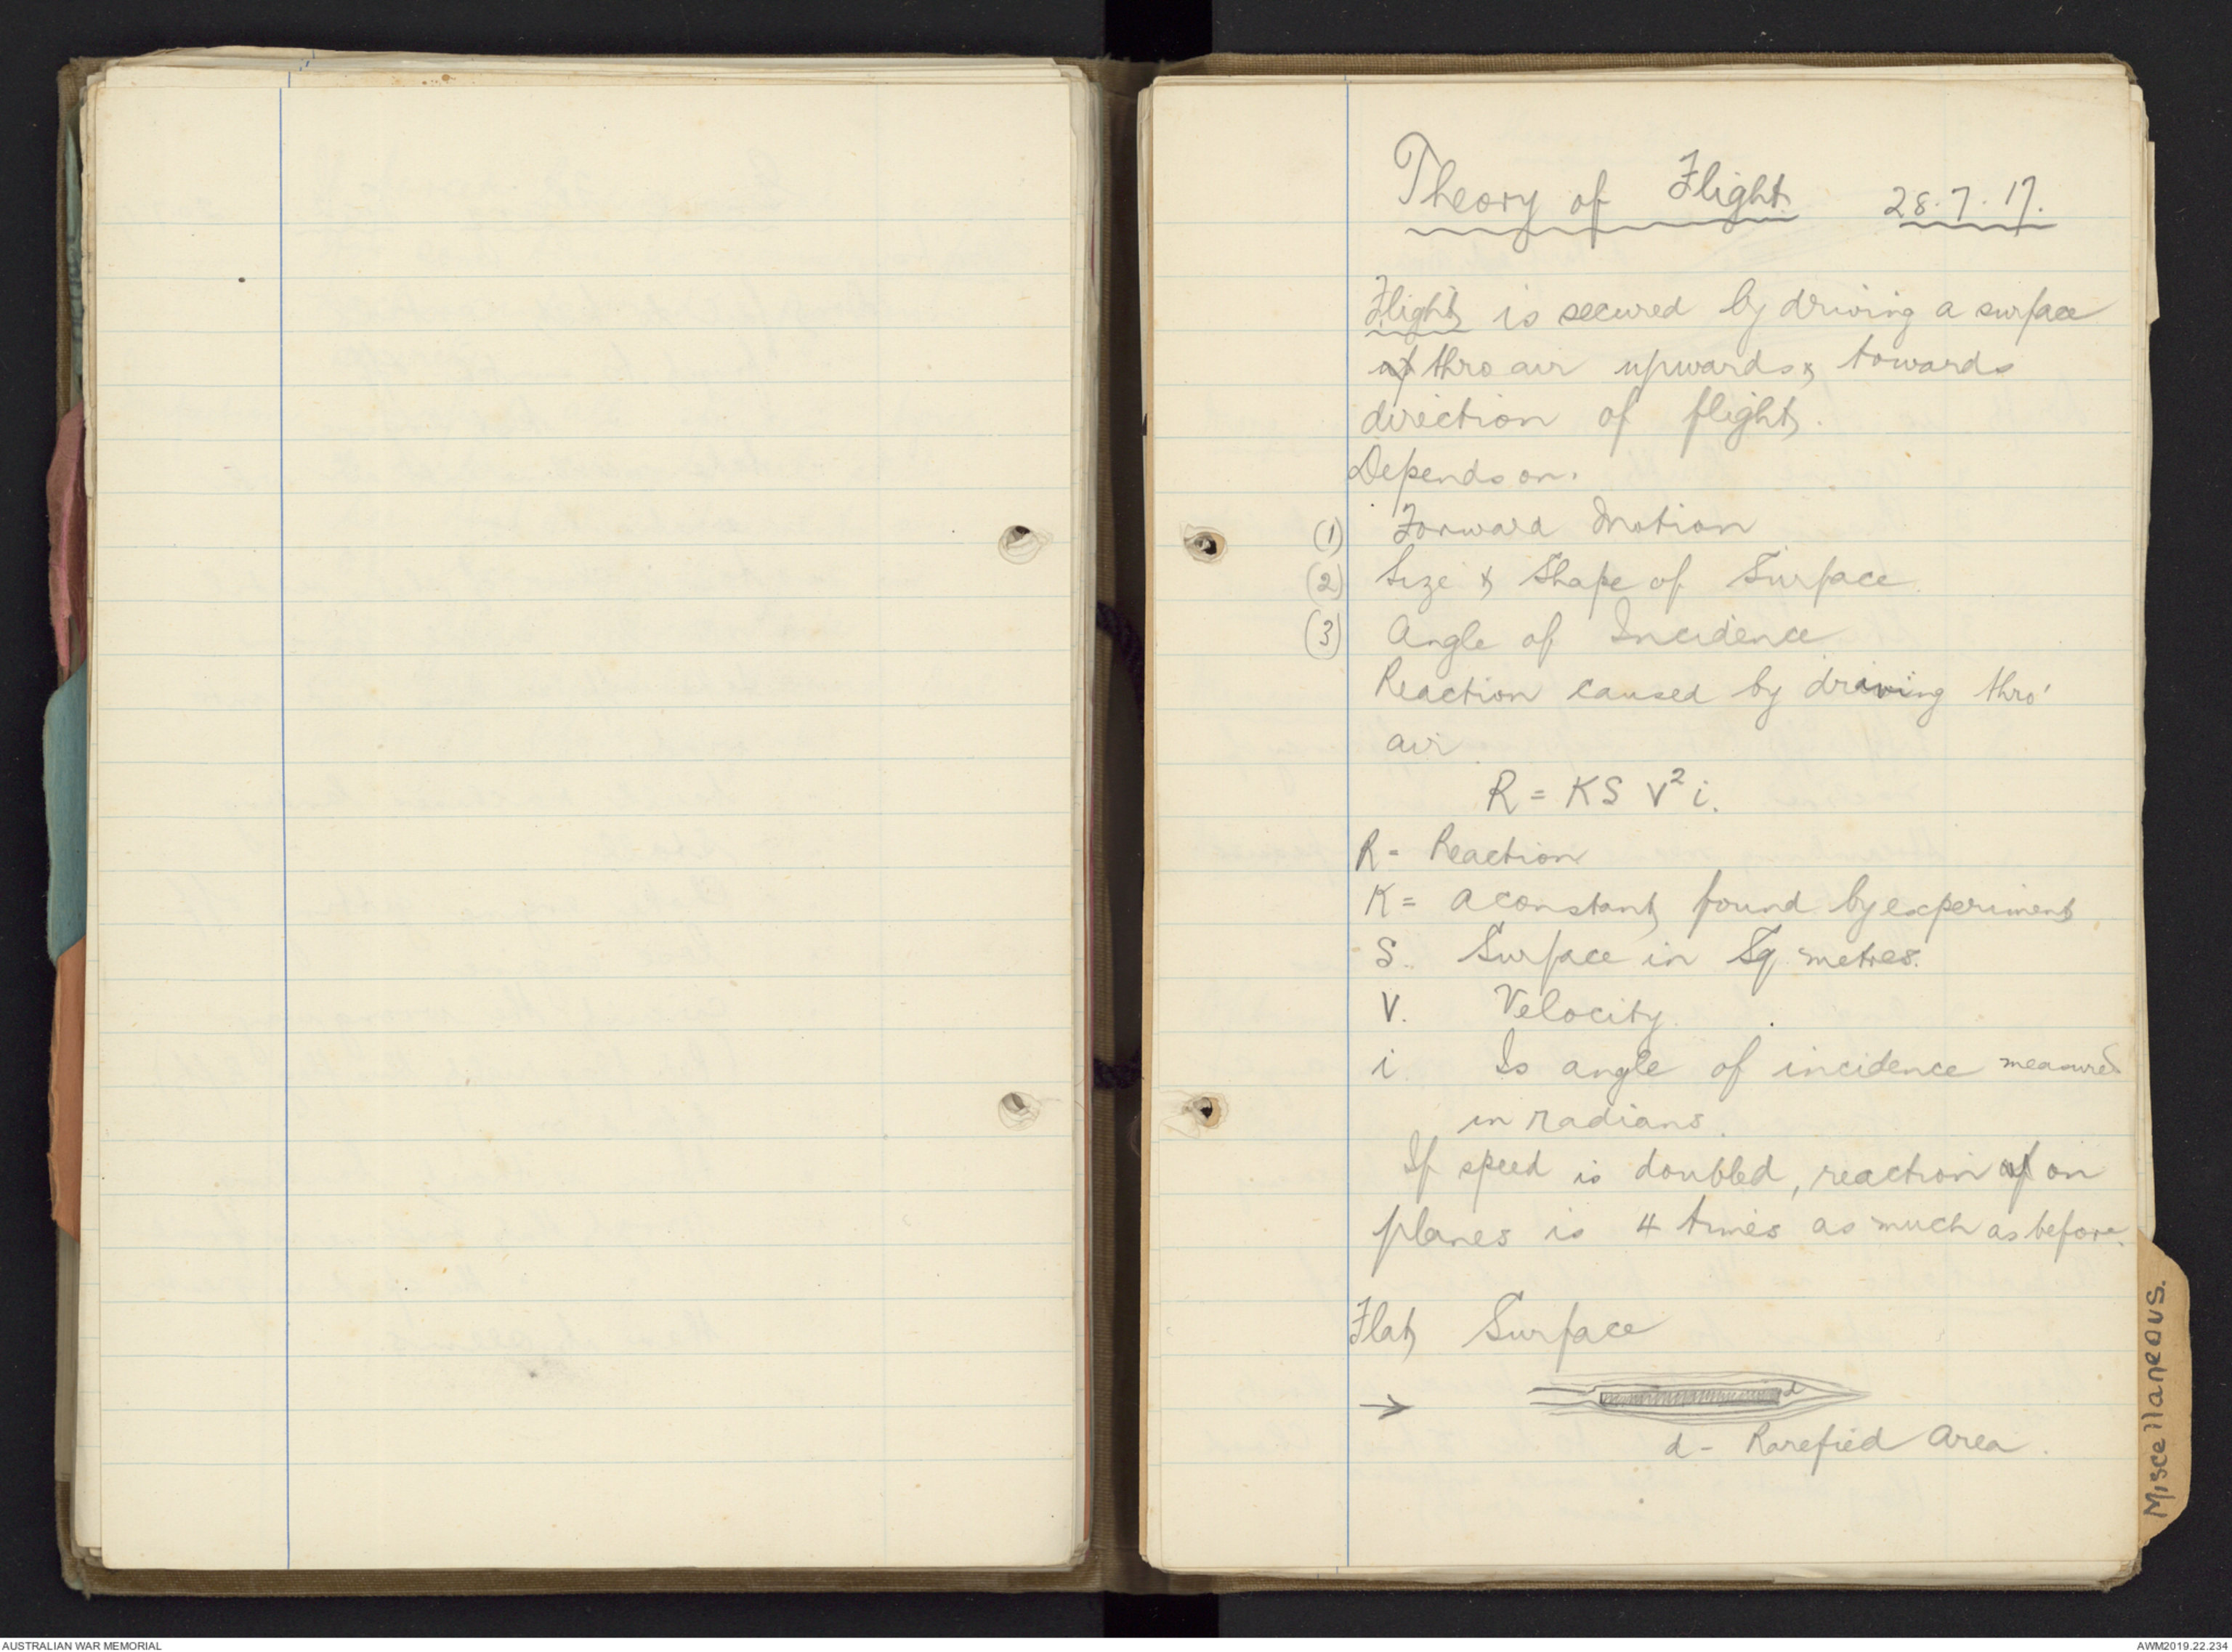 Theory of Flight 28.7.17.
Flight is secured by driving a surface
of thro air upwards & towards
direction of flight.
Depends on.
(1) Forward Motion
(2) Size & Shape of Surface.
(3) Angle of Incidence
Reaction caused by drawing thro'
air
R = KS V² i.
R - Reaction
K = a constant found by experiment
S. Surface in Sq metres.
V. Velocity
i Is angle of incidence measured
in radians.
If speed is doubled, reaction of on
planes is 4 times as much as before.
Flat Surface
→ d
d - Rarefied Area.
Miscellaneous.
AUSTRALIAN WAR MEMORIAL
AWM2019.22.234